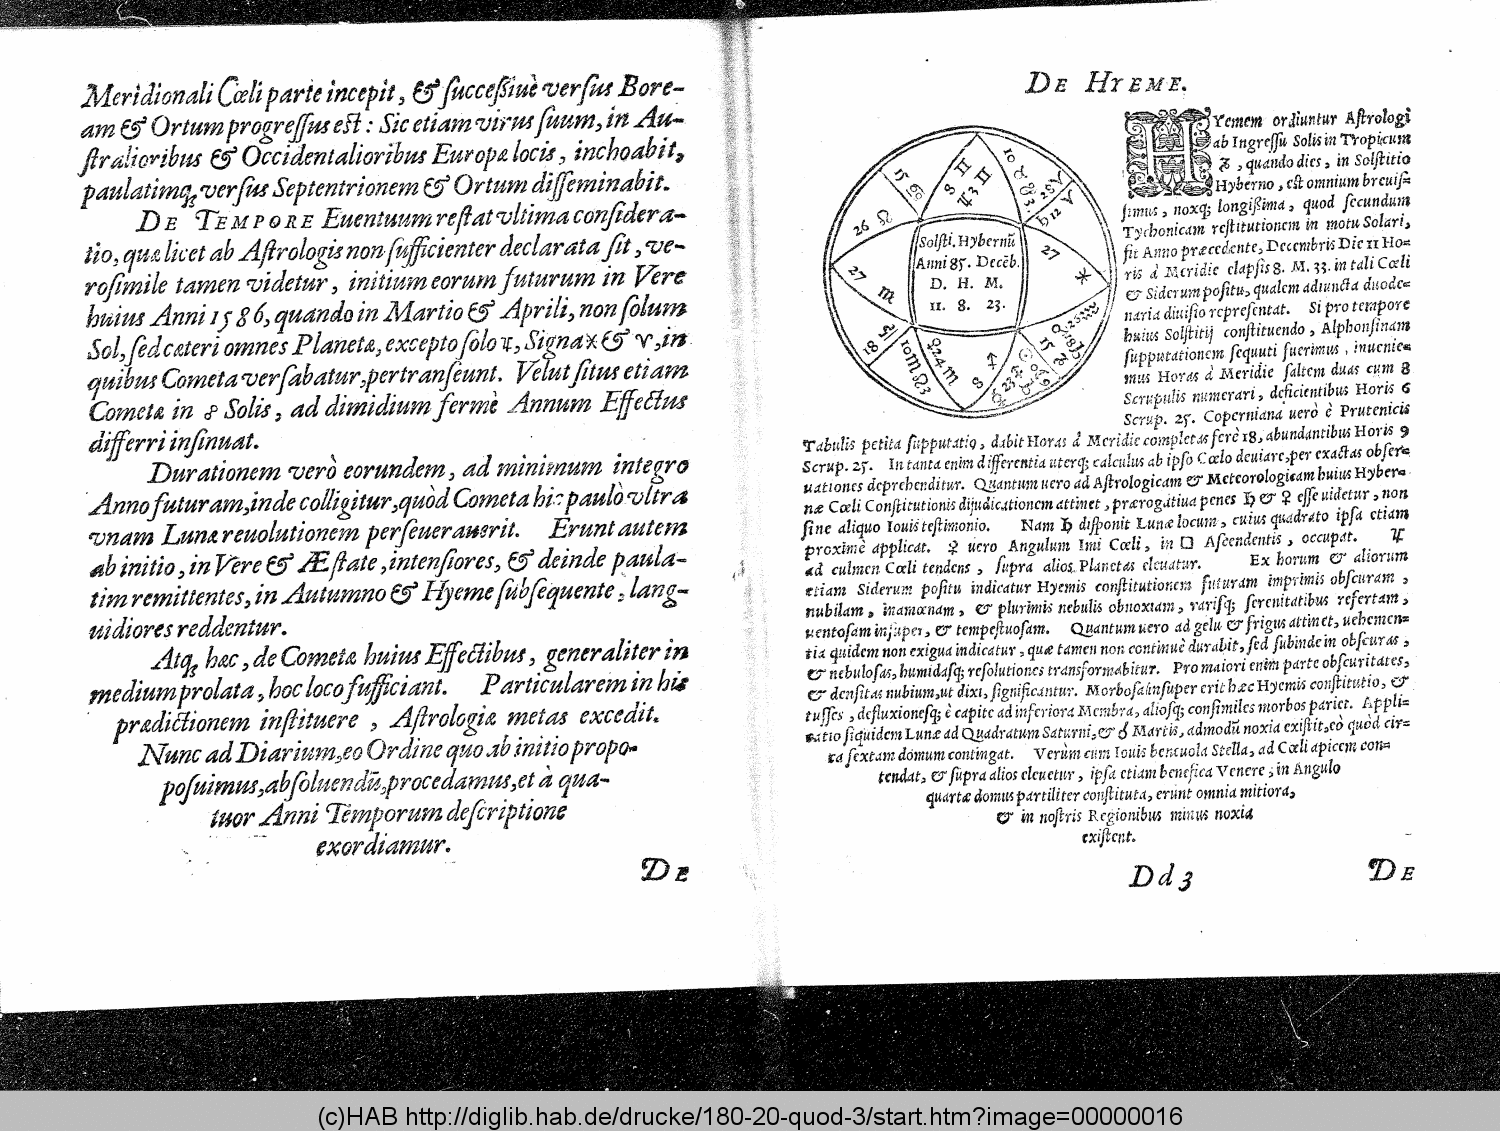 Meridionali Cœli parte incepit, & ſucceſsiuè verſus Bore-
am & Ortum progreſſus eſt: Sic etiam virus ſuum, in Au-
ſtralioribus & Occidentalioribus Europæ locis, inchoabit,
paulatimq; verſus Septentrionem & Ortum diſſeminabit.
DE TEMPORE Euentuum reſtat vltima conſidera-
tio, quæ licet ab Aſtrologis non ſufficienter declarata ſit, ve-
roſimile tamen videtur, initium eorum futurum in Vere
huius Anni 1586, quando in Martio & Aprili, non ſolum
Sol, ſed cæteri omnes Planetæ, excepto ſolo ♃, Signa ♓ & ♈, in
quibus Cometa verſabatur, pertranſeunt. Velut ſitus etiam
Cometæ in ☍ Solis, ad dimidium fermè Annum Effectus
differri inſinuat.
Durationem verò eorundem, ad minimum integro
Anno futuram, inde colligitur, quòd Cometa hic paulò vltra
vnam Lunæ reuolutionem perſeuerauerit. Erunt autem
ab initio, in Vere & Æſtate, intenſiores, & deinde paula-
tim remittentes, in Autumno & Hyeme ſubſequente, lang-
uidiores reddentur.
Atq; hæc, de Cometæ huius Effectibus, generaliter in
medium prolata, hoc loco ſufficiant. Particularem in his
prædictionem inſtituere, Aſtrologiæ metas excedit.
Nunc ad Diarium, eo Ordine quo ab initio propo-
poſuimus, abſoluendū, procedamus, et à qua-
tuor Anni Temporum deſcriptione
exordiamur.
DE
DE HYEME.
HYemem ordiuntur Aſtrologi
ab Ingreſſu Solis in Tropicum
♑, quando dies, in Solſtitio
Hyberno, eſt omnium breuiſ-
ſimus, noxq; longiſsima, quod ſecundum
Tychonicam reſtitutionem in motu Solari,
fit Anno præcedente, Decembris Die 11 Ho-
ris à Meridie elapſis 8. M. 33. in tali Cœli
& Siderum poſitu, qualem adiuncta duode-
naria diuiſio repreſentat. Si pro tempore
huius Solſtitij conſtituendo, Alphonſinam
ſupputationem ſequuti fuerimus, inuenie-
mus Horas à Meridie ſaltem duas cum 8
Scrupulis numerari, deficientibus Horis 6
Scrup. 25. Coperniana uerò è Prutenicis
Solſti. Hybernū
Anni 85. Decēb.
D. H. M.
11. 8. 23.
8 ♊
♃ 3 ♊
10 ♉
☊ 3.
28 ♈
♄ 12 ♈
27 ♓
15 ♑
8 ♐
♀ 24 ♏
10 ♏ ☋ 3
18 ♎
27 ♍
26 ♌
15 ♋
Tabulis petita ſupputatio, dabit Horas à Meridie completas ferè 18, abundantibus Horis 9
Scrup. 25. In tanta enim differentia uterq; calculus ab ipſo Cœlo deuiare, per exactas obſer-
uationes deprehenditur. Quantum uero ad Aſtrologicam & Meteorologicam huius Hyber-
næ Cœli Conſtitutionis dijudicationem attinet, prærogatiua penes ♄ & ♀ eſſe uidetur, non
ſine aliquo Iouis teſtimonio. Nam ♄ diſponit Lunæ locum, cuius quadrato ipſa etiam
proximè applicat. ♀ uero Angulum Imi Cœli, in □ Aſcendentis, occupat. ♃
ad culmen Cœli tendens, ſupra alios Planetas eleuatur. Ex horum & aliorum
etiam Siderum poſitu indicatur Hyemis conſtitutionem futuram imprimis obſcuram,
nubilam, inamœnam, & plurimis nebulis obnoxiam, rariſq; ſerenitatibus refertam,
uentoſam inſuper, & tempeſtuoſam. Quantum uero ad gelu & frigus attinet, uehemen-
tia quidem non exigua indicatur, quæ tamen non continuè durabit, ſed ſubinde in obſcuras,
& nebuloſas, humidaſq; reſolutiones transformabitur. Pro maiori enim parte obſcuritates,
& denſitas nubium, ut dixi, ſignificantur. Morboſa inſuper erit hæc Hyemis conſtitutio, &
tuſſes, defluxioneſq; è capite ad inferiora Membra, alioſq; conſimiles morbos pariet. Appli-
catio ſiquidem Lunæ ad Quadratum Saturni, & ☌ Martis, admodū noxia exiſtit, eò quòd cir-
ca ſextam domum contingat. Verùm cum Iouis beneuola Stella, ad Cœli apicem con-
tendat, & ſupra alios eleuetur, ipſa etiam benefica Venere, in Angulo
quartæ domus partiliter conſtituta, erunt omnia mitiora,
& in noſtris Regionibus minus noxia
exiſtent.
Dd3
DE
(c)HAB http://diglib.hab.de/drucke/180-20-quod-3/start.htm?image=00000016